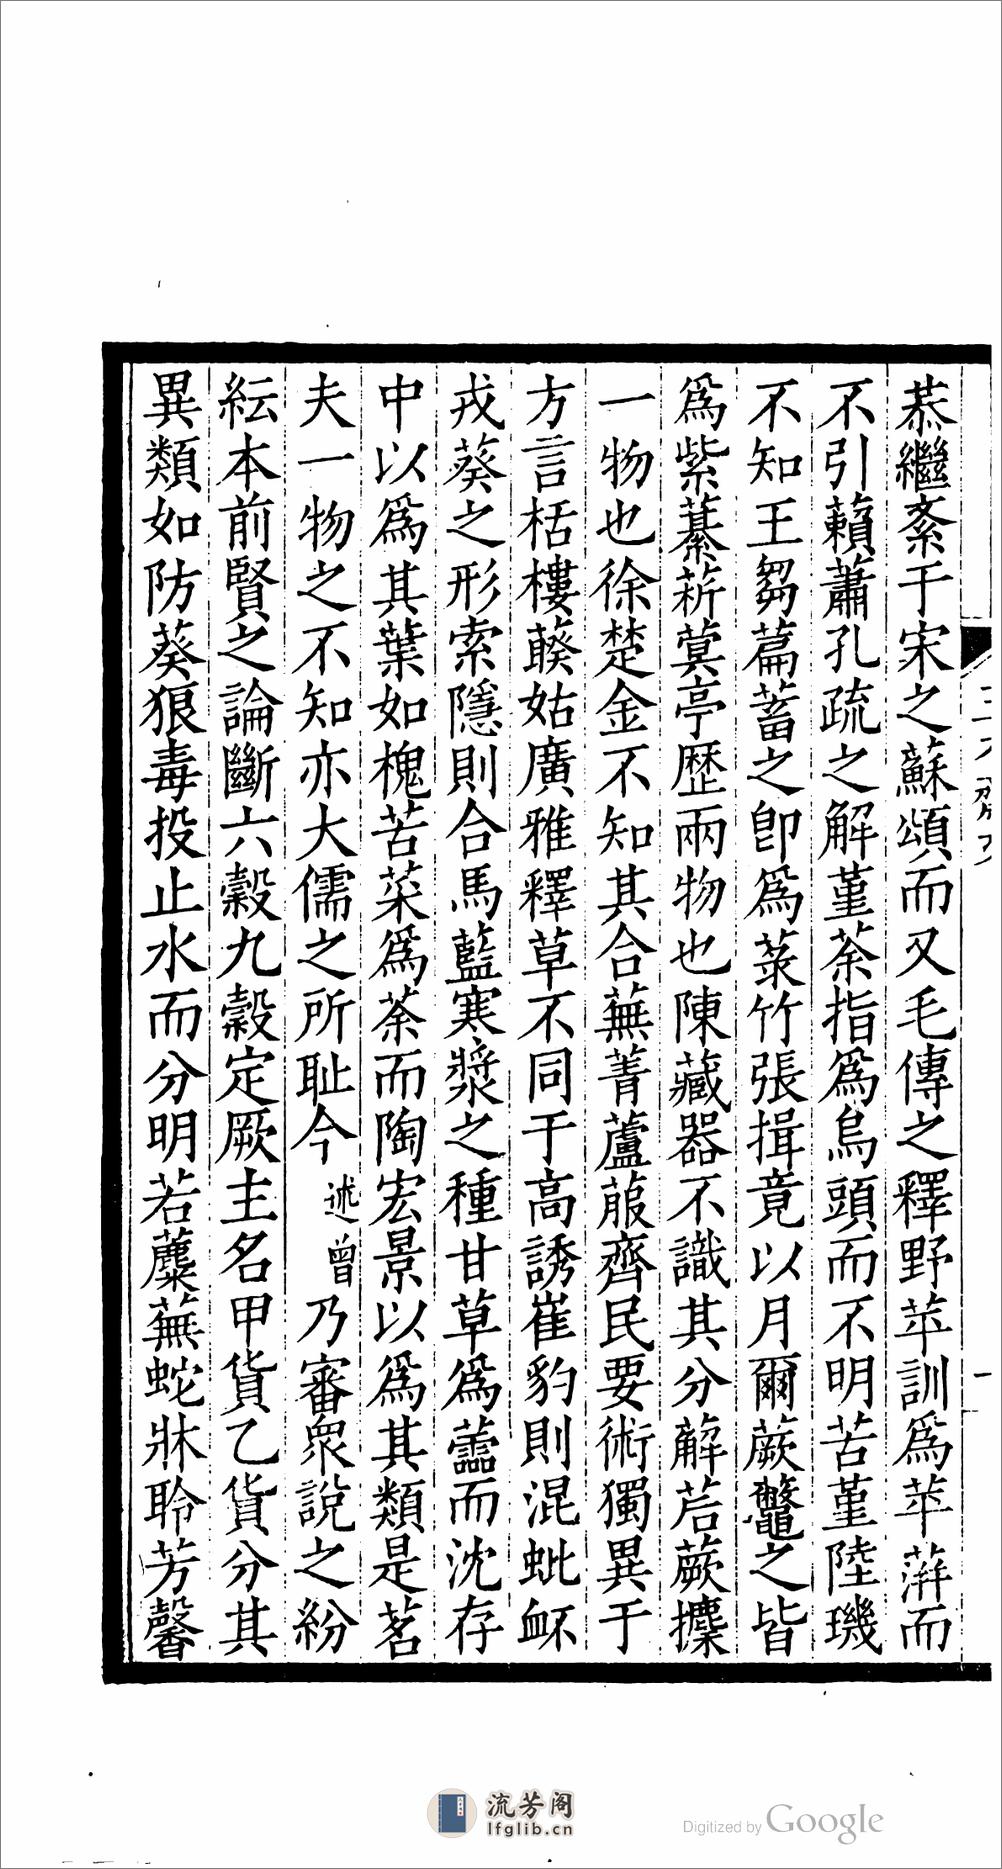 恭繼紊于宋之蘇頌而又毛傳之釋野苹訓爲苹蓱而
不引藾蕭孔疏之解堇荼指爲烏頭而不明苦堇陸璣
不知王芻萹蓄之卽爲菉竹張揖竟以月爾蕨虌之皆
爲紫藄菥蓂亭歴兩物也陳藏器不識其分薢茩蕨攗
一物也徐楚金不知其合蕪菁蘆菔齊民要術獨異于
方言栝樓𦺮姑廣雅釋草不同于高誘崔豹則混蚍衃
戎葵之形索隱則合馬藍寒漿之種甘草爲蘦而沈存
中以爲其葉如槐苦菜爲荼而陶宏景以爲其類是茗
夫一物之不知亦大儒之所耻今述曾乃審衆說之紛
紜本前賢之論斷六穀九穀定厥主名甲貨乙貨分其
異類如防葵狼毒投止水而分明若蘪蕪蛇牀聆芳馨
一
流芳阁
lfglib.cn
Digitized by Google